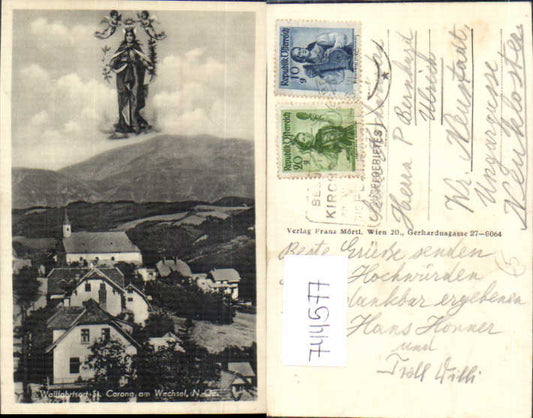 Wallfahrtsort St. Corona am Wechsel, N.-Oe.
Republik Österreich
10
g
Republik Österreich
20
g
KIRCH
SEEGEBIETES
Herrn P. Bernhard
Ulrich
Wr. Neustadt
Ungargasse
Neukloster
Verlag Franz Mörtl, Wien 20., Gerhardusgasse 27—9064
Beste Grüße senden
Hochwürden
dankbar ergebenen
Hans Honner
und
Trall Willi
5
744577